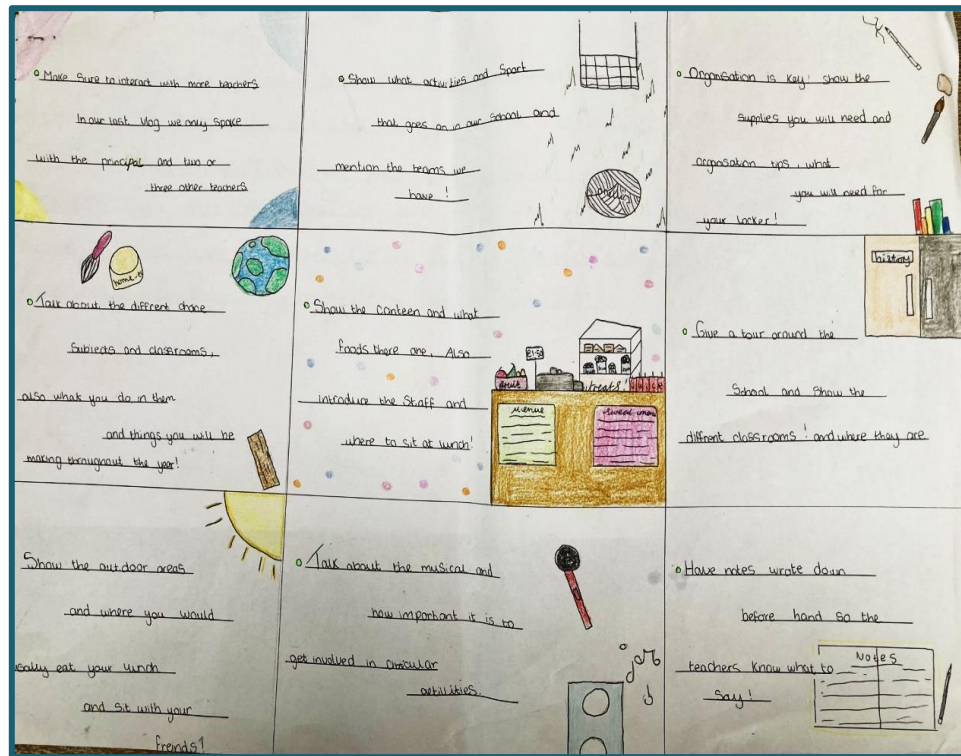 Make Sure to interact with more teachers
In our last Vlog we only spoke
with the principal and two or
three other teachers
Show what activities and Sport
that goes on in our school and
mention the teams we
have !
Organisation is key! show the
supplies you will need and
organsation tips, what
you will need for
your locker!
home-ec
Talk about the diffrent choice
Subjects and classrooms,
also what you do in them
and things you will be
making throughout the year!
Show the canteen and what
foods there are, Also
introduce the Staff and
where to sit at lunch!
fruit
treats
menue
history
Give a tour around the
School and Show the
diffrent classrooms! and where they are
Show the outdoor areas
and where you would
usally eat your lunch
and sit with your
freinds!
Talk about the musical and
how important it is to
get involved in
Have notes wrote down
before hand so the
teachers know what to
say!
Notes